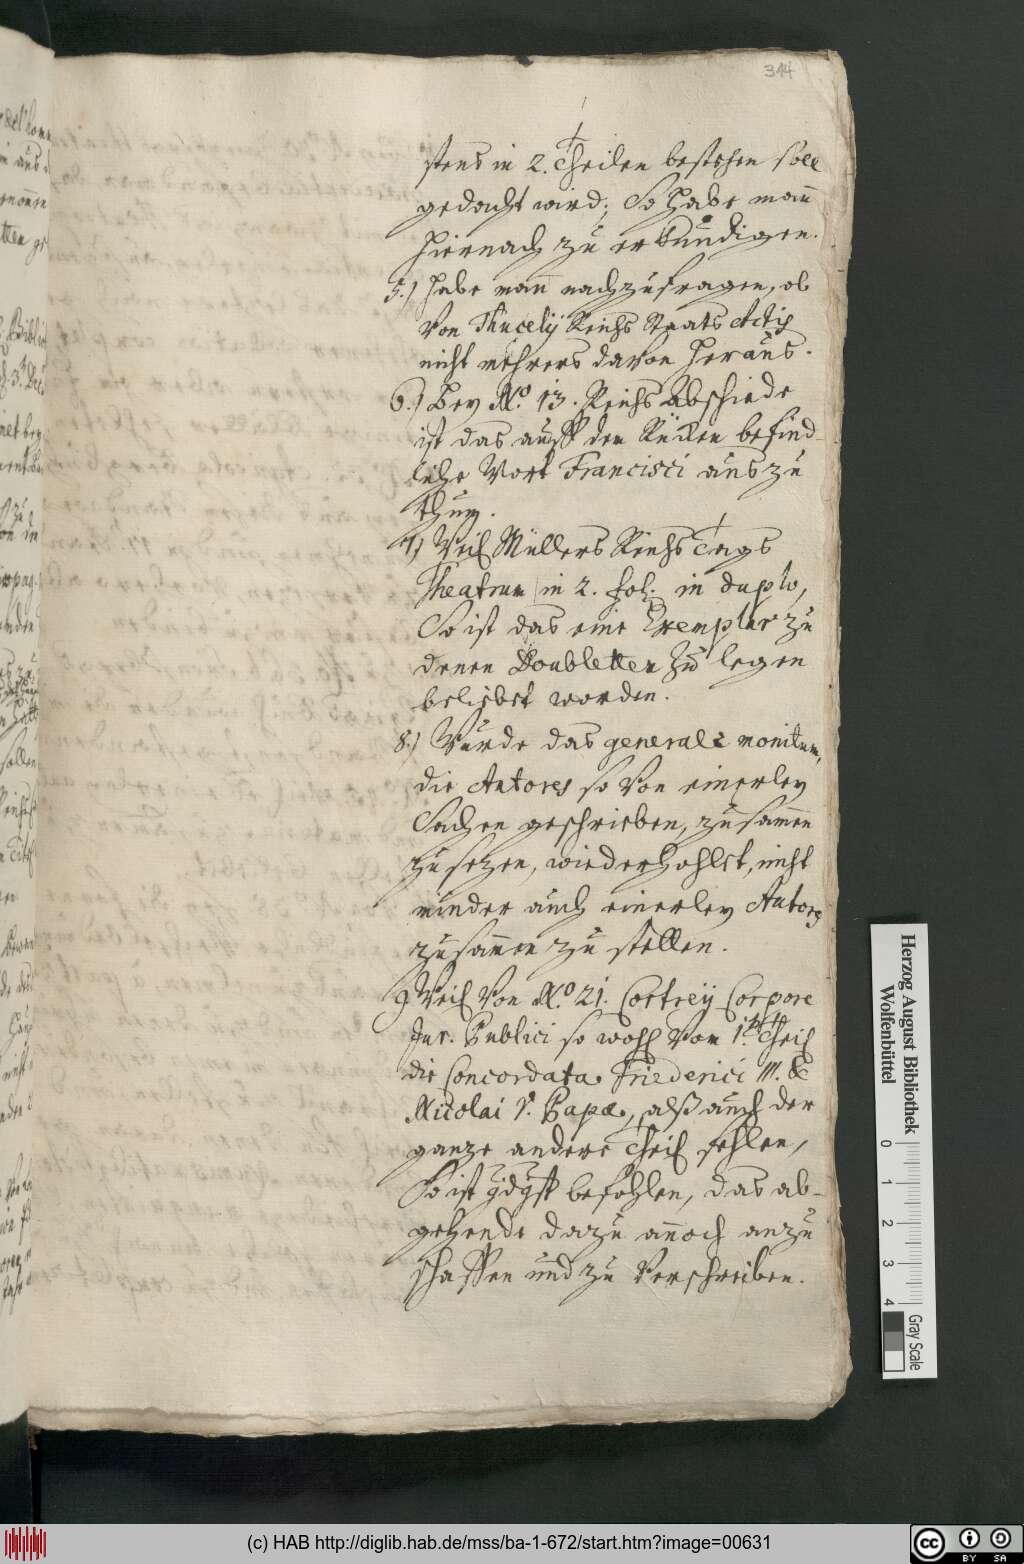 344
stens in 2. Theilen bestehen soll
gedacht wird; So habe mann
hiernach zu erkundigen.
5.) habe mann nachzufragen, ob
von Thucelij Reichs Staats Actis
nicht mehrers davon heraus.
6.) Bey No. 13. Reichs Abschiede
ist das auff den Rücken befind-
liche Wort Francisci aus zu
thun.
7.) Weil Müllers Reichs Tags
Theatrum in 2. fol. in duplo,
So ist das eine Exemplar zu
denen Doubletten zu legen
beliebet worden.
8.) Wurde das generale monitum,
die Autores so von einerley
Sachen geschrieben, zusammen
zu sezen, wiederhohlet, nicht
minder auch einerley Autores
zusammen zu stellen.
9.) Weil von No. 21. Cortreij Corpore
Jur. Publici so wohl vom 1.ten Theil
die Concordata Friederici III. &
Nicolai V. Papæ, alß auch der
ganze andere Theil fehlen,
So ist gdgst befohlen, das ab-
gehende dazu annoch anzu
schaffen und zu verschreiben.
Herzog August Bibliothek
Wolfenbüttel
0 1 2 3 4
Gray Scale
(c) HAB http://diglib.hab.de/mss/ba-1-672/start.htm?image=00631
cc BY SA